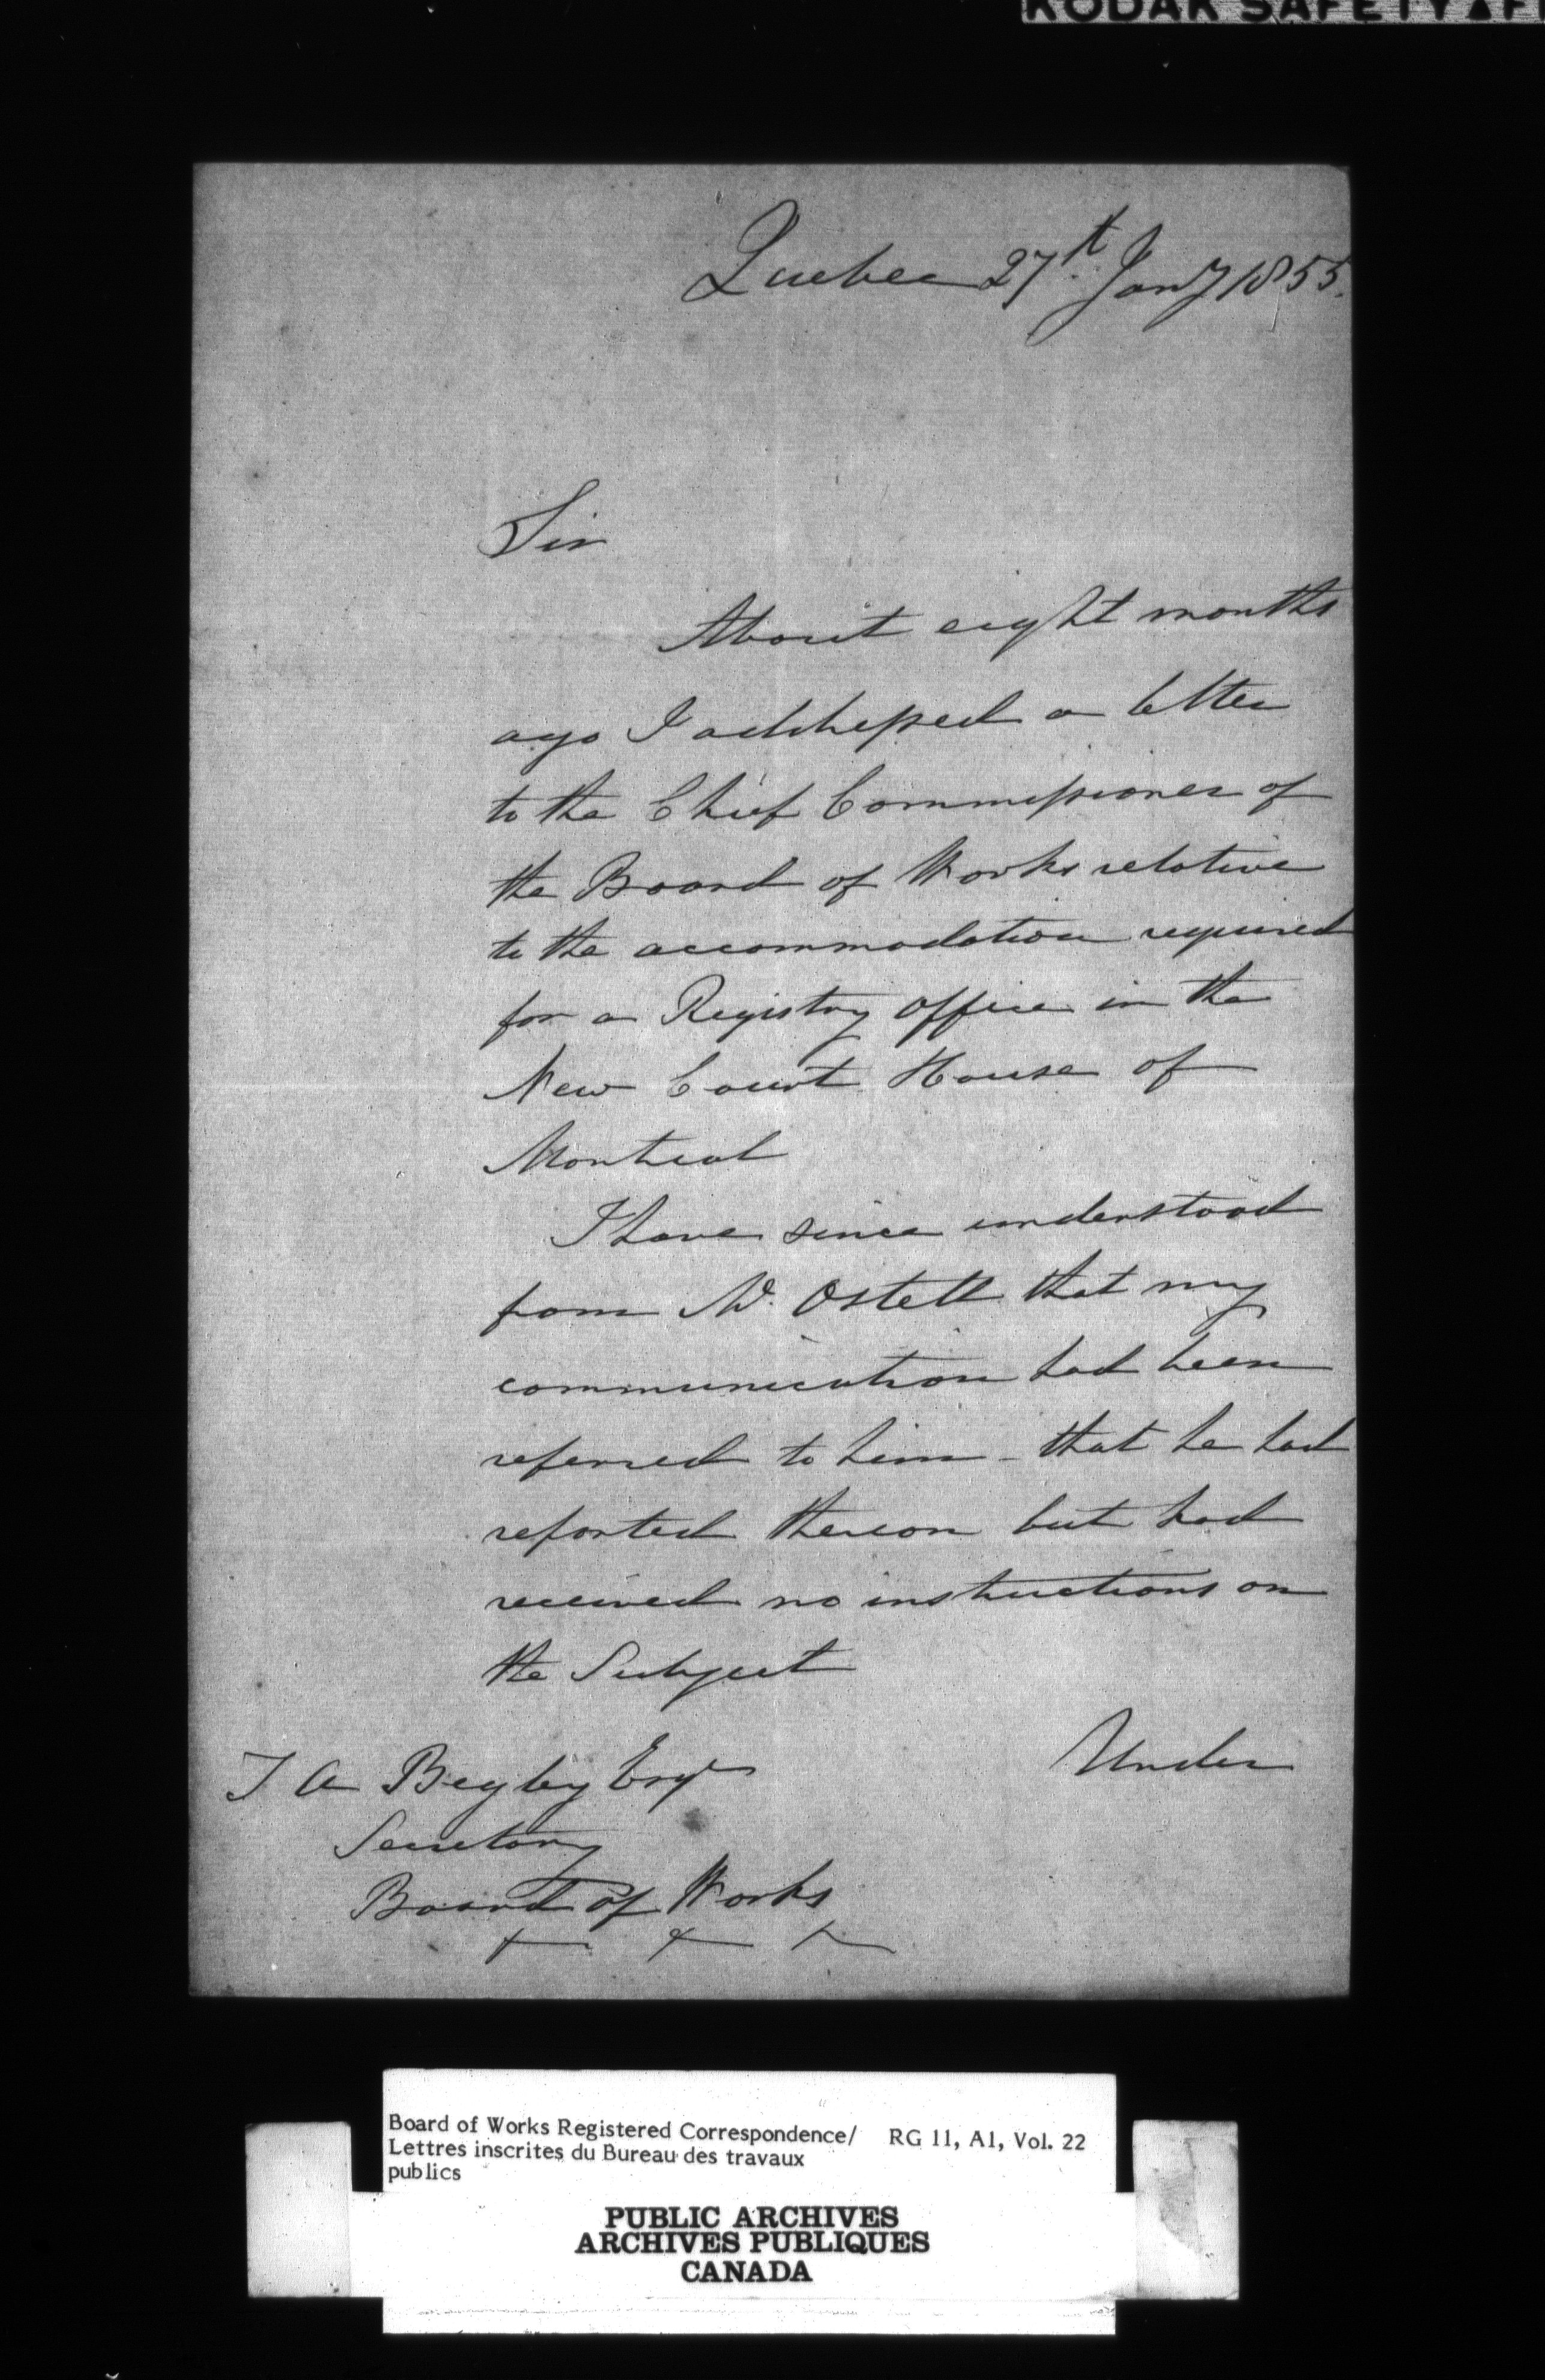 KODAK SAFETY▲FI
Quebec 27th. Jany 1855.
Sir
About eight months
ago I addressed a letter
to the Chief Commissioner of
the Board of Works relative
to the accommodation required
for a Registry office in the
New Court House of
Montreal
I have since understood
from Mr. Ostell that my
communication had been
referred to him - that he had
reported thereon but had
received no instructions on
the Subject
Under
T A Begley Esqr
Secretary
Board of Works
Board of Works Registered Correspondence/ RG 11, A1, Vol. 22
Lettres inscrites du Bureau des travaux
publics
PUBLIC ARCHIVES
ARCHIVES PUBLIQUES
CANADA